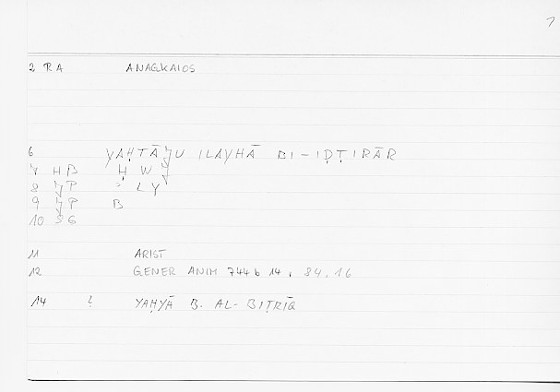 2 RA ANAGKAIOS
6 YAḤTĀǦU ILAYHĀ BI-IḌṬIRĀR
7 HB Ḥ W Ǧ
8 ǦP ʾ L Y
9 ǦP B
10 SG
11 ARIST
12 GENER ANIM 744b14, 84.16
14 ? YAḤYĀ B. AL-BIṬRĪQ